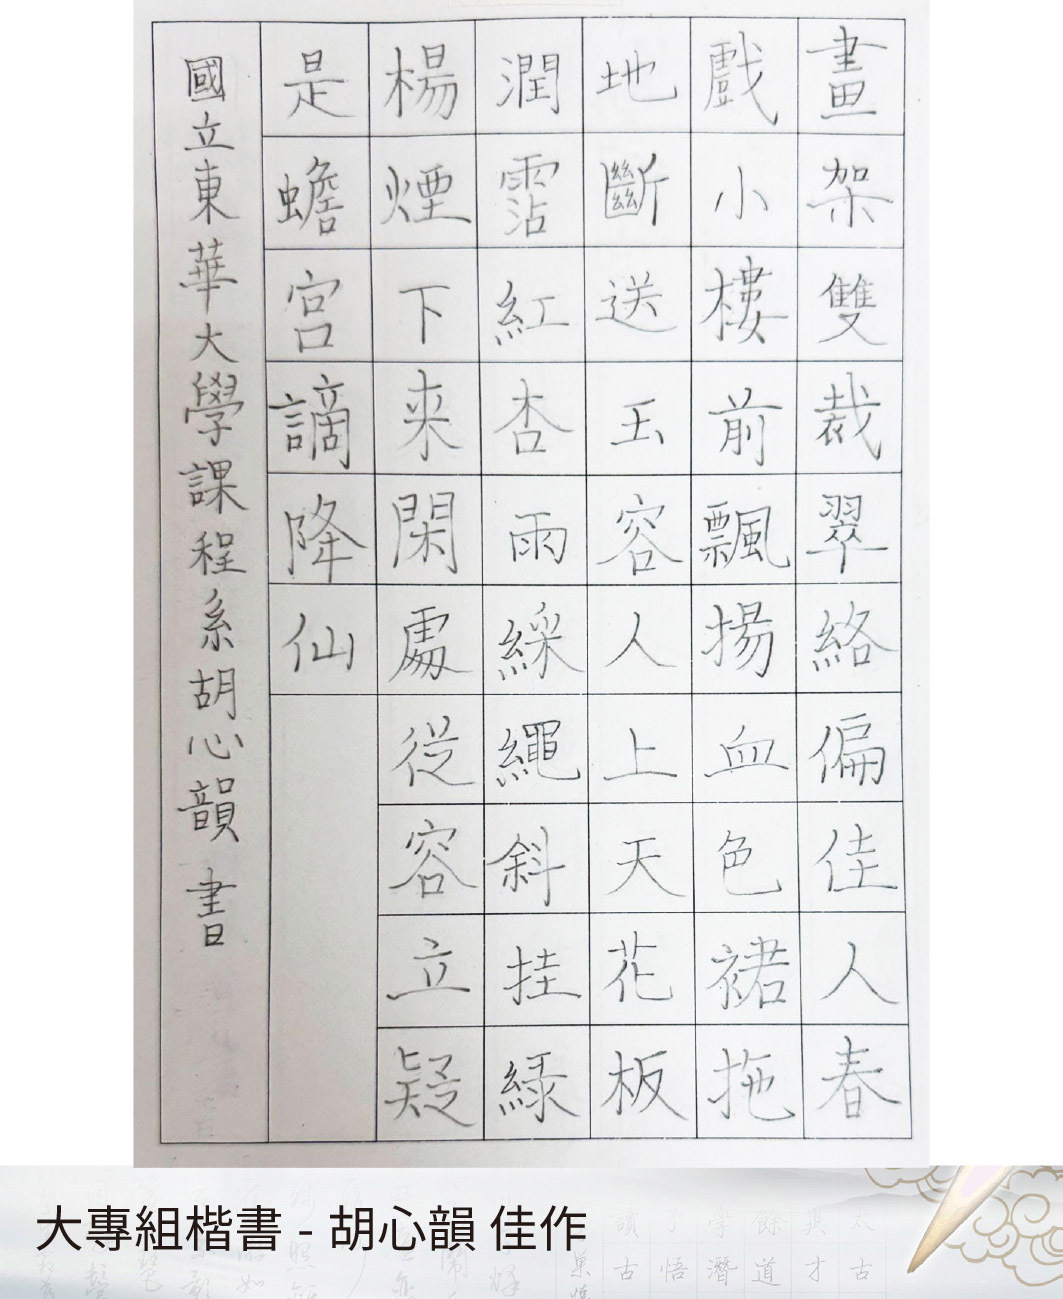 畫架雙裁翠絡偏佳人春
戲小樓前飄揚血色裙拖
地斷送玉容人上天花板
潤霑紅杏雨綵繩斜挂綠
楊煙下来閑處從容立疑
是蟾宮謫降仙
國立東華大學課程系胡心韻 書
大專組楷書 - 胡心韻 佳作